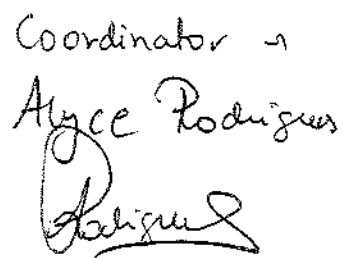 Coordinator
Alyce Rodrigues
Rodrigues